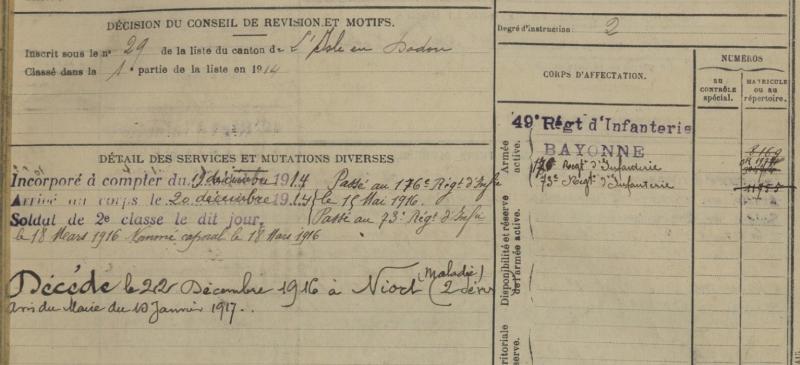 DÉCISION DU CONSEIL DE REVISION ET MOTIFS.
Inscrit sous le n° 29 de la liste du canton de L'Isle en Dodon
Classé dans la 1e partie de la liste en 1914
DÉTAIL DES SERVICES ET MUTATIONS DIVERSES
Incorporé à compter du décembre 1914 Passé au 176e Régt d'Infie
Arrivé au corps le 20 décembre 1914 le 15 Mai 1916.
Soldat de 2e classe le dit jour, Passé au 73e Régt d'Infie
le 18 Mars 1916 Nommé caporal le 18 Mars 1916
Décédé le 22 Décembre 1916 à Niort (Maladie)
avis du Maire du 10 Janvier 1917.
Degré d'instruction: 2
CORPS D'AFFECTATION.
NUMÉROS
au CONTRÔLE spécial.
MATRICULE ou au répertoire.
Armée active.
49e Régt d'Infanterie
BAYONNE
176 Régt d'Infanterie
73e Régt d'Infanterie
Disponibilité et réserve de l'armée active.